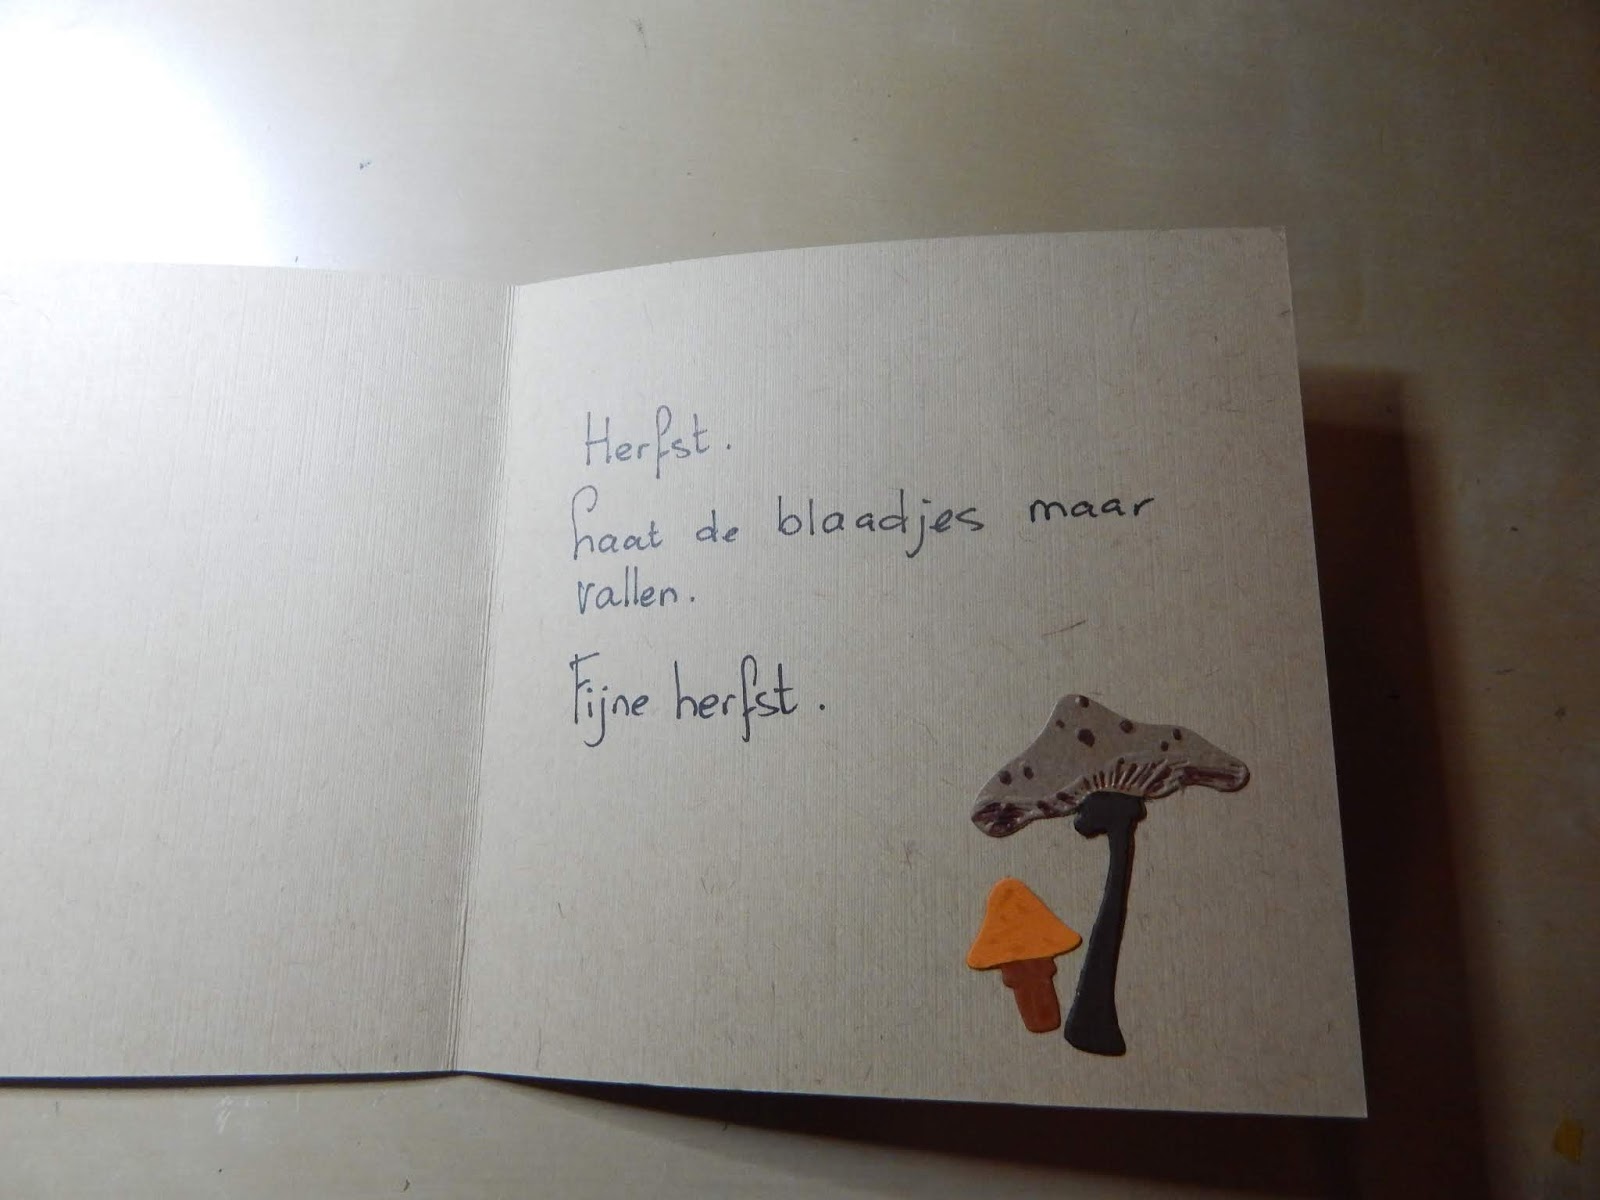 Herfst.
Laat de blaadjes maar
vallen.
Fijne herfst.